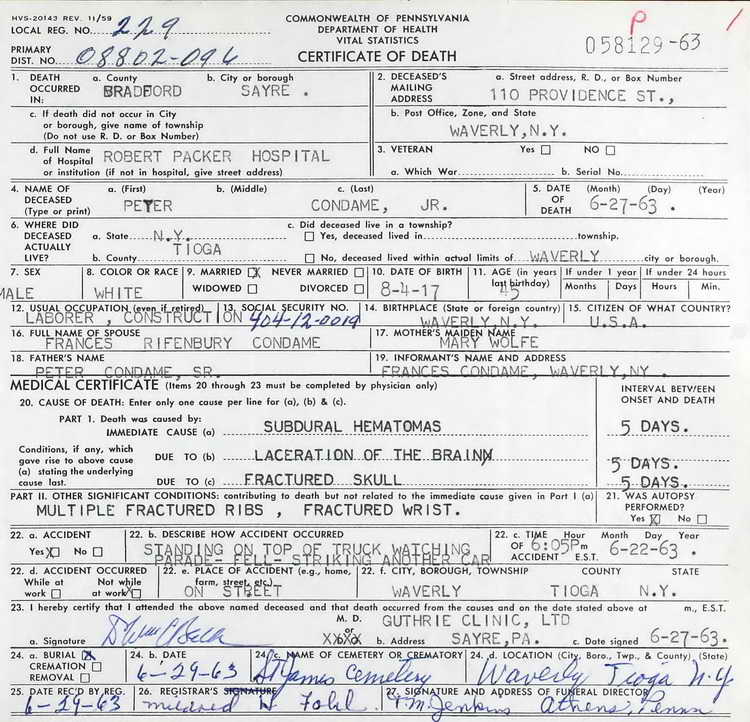 HVS-20143 REV. 11/59
COMMONWEALTH OF PENNSYLVANIA
P
LOCAL REG. NO. 229
DEPARTMENT OF HEALTH
VITAL STATISTICS
058129-63
PRIMARY DIST. NO. 08802-096
CERTIFICATE OF DEATH
1. DEATH OCCURRED IN: a. County BRADFORD b. City or borough SAYRE .
2. DECEASED'S MAILING ADDRESS a. Street address, R. D., or Box Number 110 PROVIDENCE ST.,
c. If death did not occur in City or borough, give name of township (Do not use R. D. or Box Number)
b. Post Office, Zone, and State WAVERLY,N.Y.
d. Full Name of Hospital or institution (if not in hospital, give street address) ROBERT PACKER HOSPITAL
3. VETERAN Yes No
a. Which War b. Serial No.
4. NAME OF DECEASED (Type or print) a. (First) PETER b. (Middle) c. (Last) CONDAME, JR.
5. DATE OF DEATH (Month) (Day) (Year) 6-27-63 .
6. WHERE DID DECEASED ACTUALLY LIVE? a. State N.Y.
b. County TIOGA
c. Did deceased live in a township?
Yes, deceased lived in township.
No, deceased lived within actual limits of WAVERLY city or borough.
7. SEX MALE 8. COLOR OR RACE WHITE 9. MARRIED X NEVER MARRIED WIDOWED DIVORCED 10. DATE OF BIRTH 8-4-17 11. AGE (in years last birthday) 45 If under 1 year Months Days If under 24 hours Hours Min.
12. USUAL OCCUPATION (even if retired) LABORER , CONSTRUCTION 13. SOCIAL SECURITY NO. 404-12-0019 14. BIRTHPLACE (State or foreign country) WAVERLY,N.Y. 15. CITIZEN OF WHAT COUNTRY? U.S.A.
16. FULL NAME OF SPOUSE FRANCES RIFENBURY CONDAME 17. MOTHER'S MAIDEN NAME MARY WOLFE
18. FATHER'S NAME PETER CONDAME, SR. 19. INFORMANT'S NAME AND ADDRESS FRANCES CONDAME, WAVERLY,NY .
MEDICAL CERTIFICATE (Items 20 through 23 must be completed by physician only)
INTERVAL BETWEEN ONSET AND DEATH
20. CAUSE OF DEATH: Enter only one cause per line for (a), (b) & (c).
PART 1. Death was caused by:
IMMEDIATE CAUSE (a) SUBDURAL HEMATOMAS 5 DAYS.
Conditions, if any, which gave rise to above cause (a) stating the underlying cause last.
DUE TO (b) LACERATION OF THE BRAIN 5 DAYS.
DUE TO (c) FRACTURED SKULL 5 DAYS.
PART II. OTHER SIGNIFICANT CONDITIONS: contributing to death but not related to the immediate cause given in Part I (a)
MULTIPLE FRACTURED RIBS , FRACTURED WRIST.
21. WAS AUTOPSY PERFORMED? Yes X No
22. a. ACCIDENT Yes X No
22. b. DESCRIBE HOW ACCIDENT OCCURRED
STANDING ON TOP OF TRUCK WATCHING
PARADE- FELL- STRIKING ANOTHER CAR
22. c. TIME OF ACCIDENT Hour Month Day Year 6:05Pm E.S.T. 6-22-63 .
22. d. ACCIDENT OCCURRED While at work Not while at work X
22. e. PLACE OF ACCIDENT (e.g., home, farm, street, etc.) ON STREET
22. f. CITY, BOROUGH, TOWNSHIP COUNTY STATE
WAVERLY TIOGA N.Y.
23. I hereby certify that I attended the above named deceased and that death occurred from the causes and on the date stated above at m., E.S.T.
a. Signature M. D. or XXXX b. Address GUTHRIE CLINIC, LTD SAYRE,PA. c. Date signed 6-27-63.
24. a. BURIAL CREMATION REMOVAL
24. b. DATE 6-29-63
24. c. NAME OF CEMETERY OR CREMATORY St James Cemetery
24. d. LOCATION (City, Boro., Twp., & County) (State) Waverly Tioga N.Y
25. DATE REC'D BY REG. 6-29-63
26. REGISTRAR'S SIGNATURE Mildred
27. SIGNATURE AND ADDRESS OF FUNERAL DIRECTOR Jenkins Athens, Penna